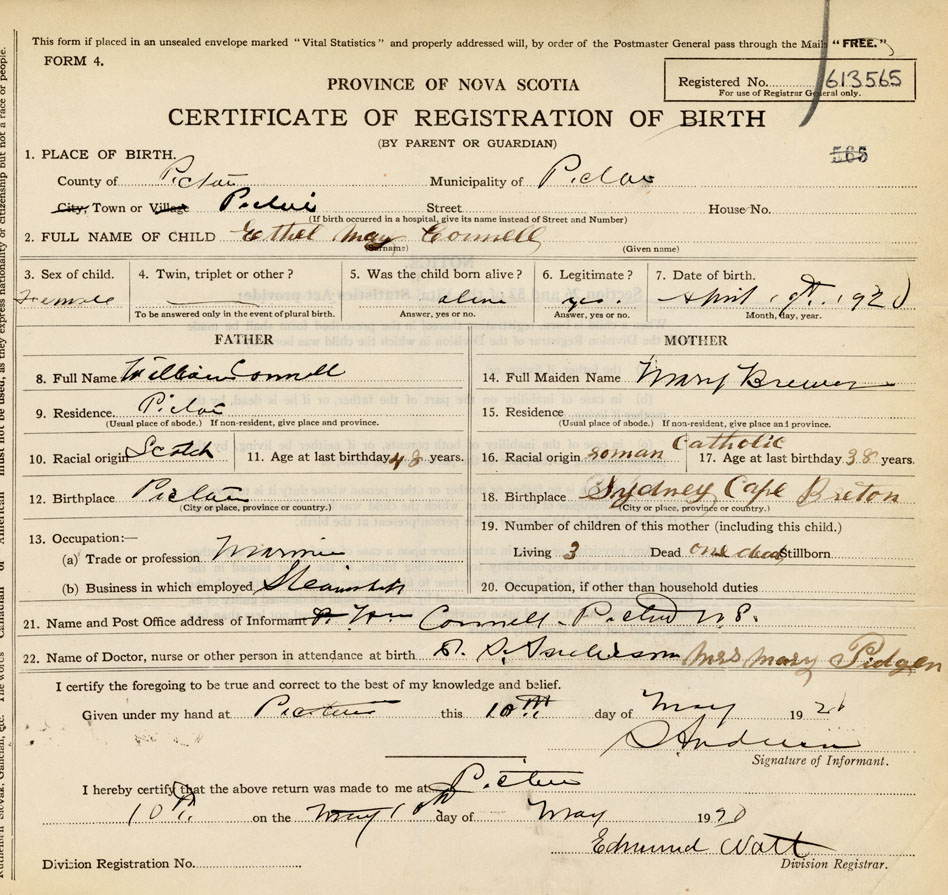 This form if placed in an unsealed envelope marked "Vital Statistics" and properly addressed will, by order of the Postmaster General pass through the Mails "FREE."
FORM 4.
Registered No. 613565
For use of Registrar General only.
PROVINCE OF NOVA SCOTIA
CERTIFICATE OF REGISTRATION OF BIRTH
(BY PARENT OR GUARDIAN)
565
1. PLACE OF BIRTH.
County of Pictou Municipality of Pictou
City, Town or Village Pictou Street House No.
(If birth occurred in a hospital, give its name instead of Street and Number)
2. FULL NAME OF CHILD Ethel May Connell
(Surname) (Given name)
3. Sex of child. 4. Twin, triplet or other? 5. Was the child born alive? 6. Legitimate? 7. Date of birth.
Female alive yes. April 192
To be answered only in the event of plural birth. Answer, yes or no. Answer, yes or no. Month, day, year.
FATHER MOTHER
8. Full Name William Connell 14. Full Maiden Name Mary Brewer
9. Residence. Pictou 15. Residence
(Usual place of abode.) If non-resident, give place and province. (Usual place of abode.) If non-resident, give place and province.
10. Racial origin Scotch 11. Age at last birthday 48 years. 16. Racial origin roman Catholic 17. Age at last birthday 38 years.
12. Birthplace Pictou 18. Birthplace Sydney Cape Breton
(City or place, province or country.) (City or place, province or country.)
19. Number of children of this mother (including this child.)
13. Occupation:—
(a) Trade or profession Living 3 Dead one dead Stillborn
(b) Business in which employed Steamship 20. Occupation, if other than household duties
21. Name and Post Office address of Informant Wm Connell Pictou N.S.
22. Name of Doctor, nurse or other person in attendance at birth Mrs Mary Pidgen
I certify the foregoing to be true and correct to the best of my knowledge and belief.
Given under my hand at Pictou this 10TH day of May 192
Signature of Informant.
I hereby certify that the above return was made to me at Pictou
10th on the May 10th day of May 1920
Edmund Watt
Division Registration No. Division Registrar.